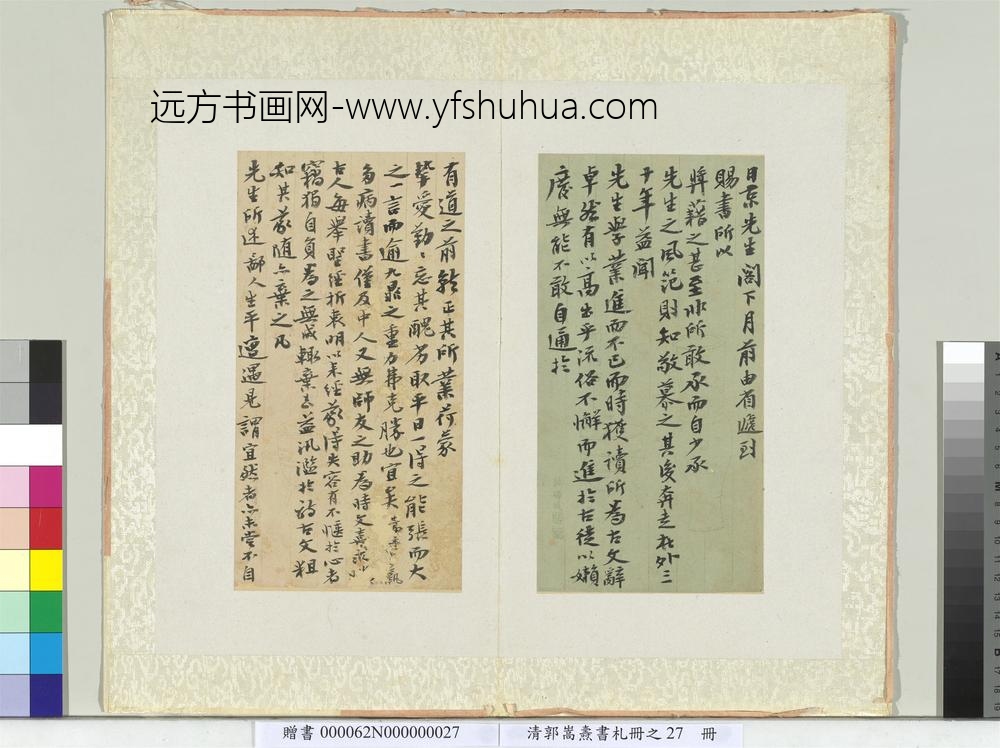 远方书画网-www.yfshuhua.com
日京先生阁下月前由省递到
賜書所以
獎藉之甚至非所敢承而自少承
先生之風范則知敬慕之其後奔走在外三
十年益聞
先生學業進而不已而時獲讀所為古文辭
卓然有以高出乎流俗不懈而進於古徒以嬾
廢無能不敢自通於
有道之前 正其所業荷蒙
摯愛勤〻忘其醜劣取平日一得之能張而大
之一言而逾九鼎之重乃弗克勝也宜矣
多病讀書僅及中人又無師友之助為時文
古人每舉聖經折衷明以來經義得失容有不愜於心者
竊獨自負為之無成輒棄去益汎濫於詩古文粗
知其蒙隨亦棄之凡
先生所述鄙人生平遭遇見謂宜然者亦未嘗不自
贈書 000062N000000027
清郭嵩燾書札冊之 27 冊